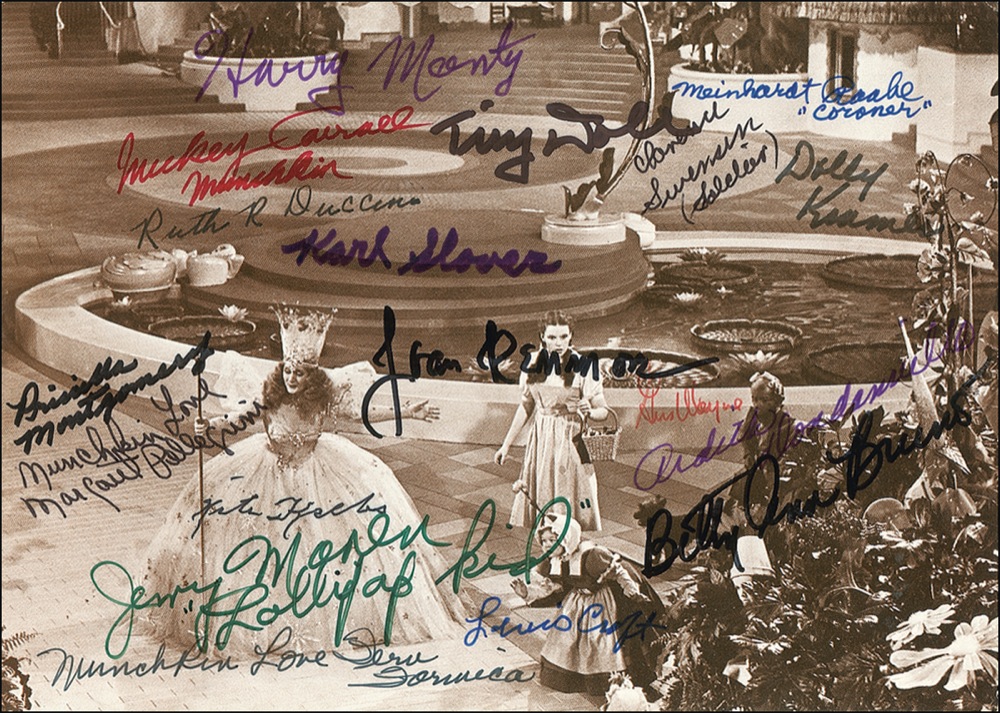 Harry Monty
Meinhardt Raabe
"Coroner"
Mickey Carroll
Munchkin
Tiny Doll
Clarence
Swensen
(Soldier)
Dolly
Kramer
Ruth R Duccini
Karl Slover
Joan Kenmore
Priscilla
Montgomery
Gus Wayne
Munchkin Love
Margaret Pellegrini
Ardith Dondanville
Betty Ann Bruno
Jerry Maren
"Lollipop Kid"
Lewis Croft
Munchkin Love Fern
Formica